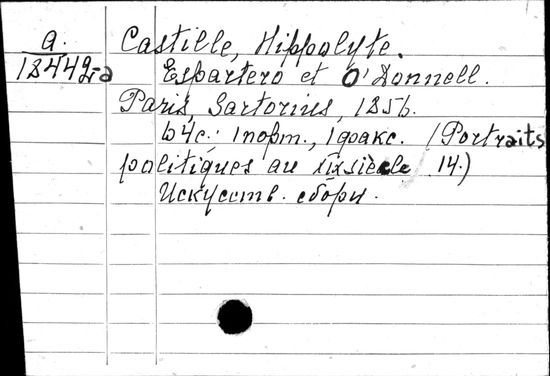 a.
18449-a
Castille, Hippolyte.
Espartero et O'Donnell.
Paris, Sartorius, 1856.
64с.: 1порт., 1факс. (Portraits
politiques au XIX siècle 14.)
Искусств. сборн.